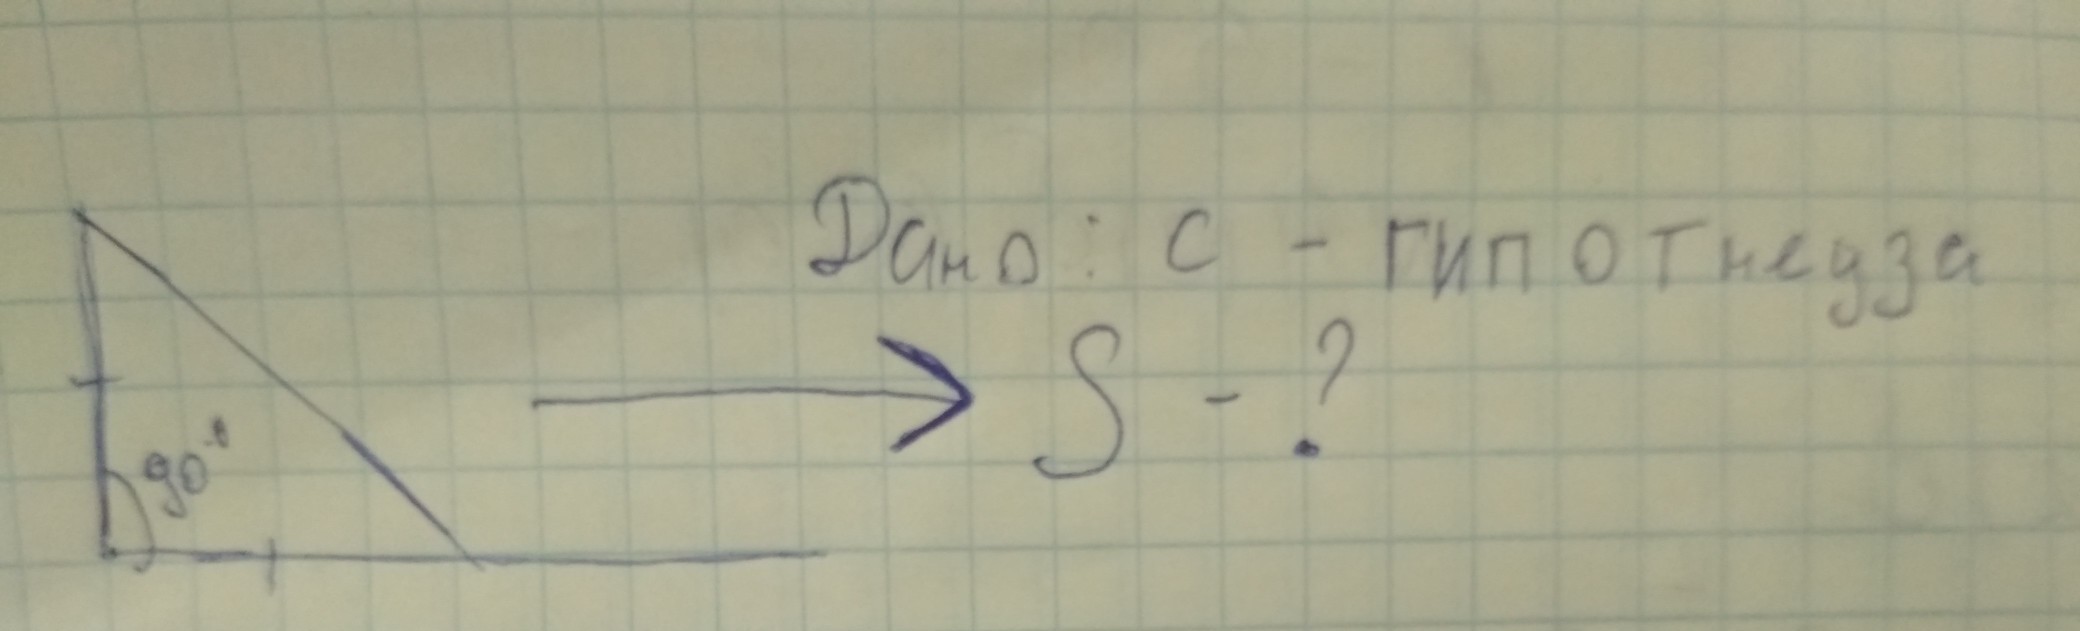 Дано: с - гипотнеуза
S - ?
90°